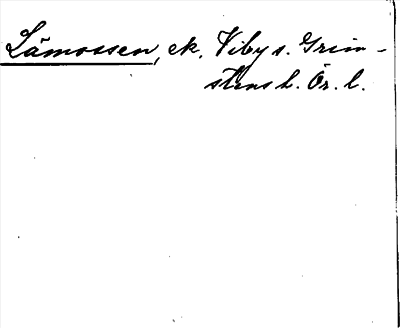 Lämossen, ek, Viby s. Grim-
stens h. Ör. l.